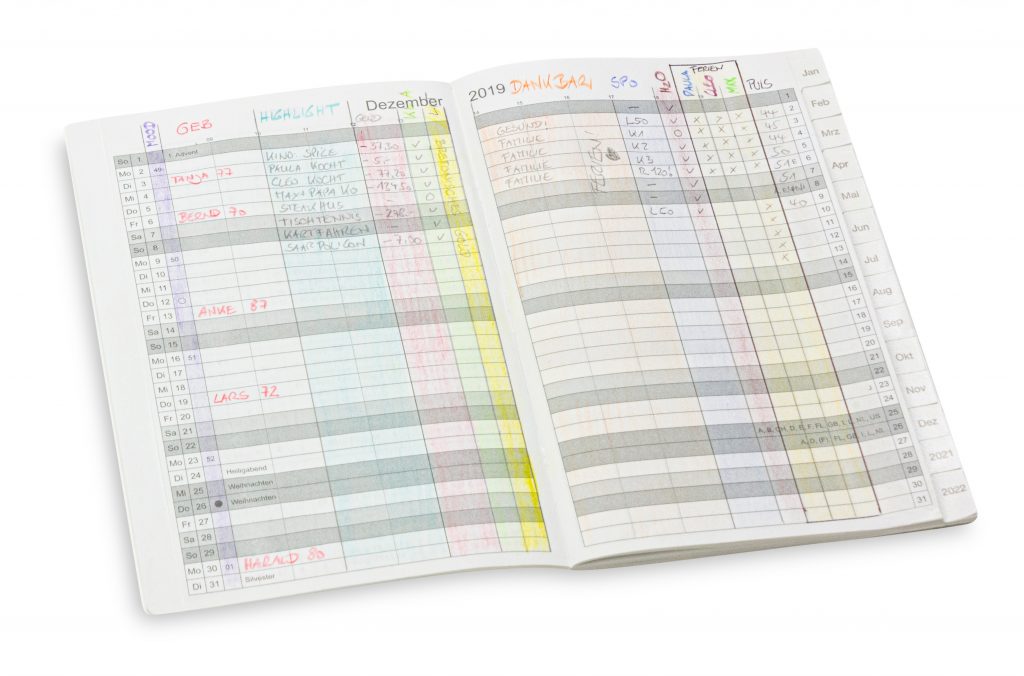 MOOD GEB HIGHLIGHT Dezember GELD
2019 DANKBAR SPO H2O PAULA CLEO MAX FERIEN PULS
So 1 1. Advent
Mo 2 49 KINO SPIZE - 37.30 ✓
Di 3 TANJA 77 PAULA KOCHT - 5.- ✓
Mi 4 CLEO KOCHT
Do 5 MAX + PAPA KO O
Fr 6 BERND 70 STEAKHUS ✓
Sa 7 TISCHTENNIS ✓
So 8 KARTFAHREN ✓
Mo 9 50 SAARPOLIGON - 7.30 ✓
Di 10
Mi 11
Do 12 ○
Fr 13 ANKE 87
Sa 14
So 15
Mo 16 51
Di 17
Mi 18
Do 19 LARS 72
Fr 20
Sa 21
So 22
Mo 23 52
Di 24 Heiligabend
Mi 25 Weihnachten
Do 26 ● Weihnachten
Fr 27
Sa 28
So 29
Mo 30 01 HARALD 80
Di 31 Silvester
— ✓ 1
GESUND! L50 ✓ x x x 44 2
FAMILIE K1 O x x x 45 3
FAMILIE K2 ✓ x x x 44 4
FAMILIE K3 ✓ x x x 50 5
FAMILIE ✓ x x x 6
FERIEN! 51 7
8
L50 ✓ x 40 9
x 10
x 11
x 12
x 13
14
15
16
17
18
19
20
21
22
J 23
24
A, B, CH, D, E, F, FL, GB, I, L, NL, US 25
A, D, (F), FL, GB, I, L, NL 26
27
28
29
30
31
Jan
Feb
Mrz
Apr
Mai
Jun
Jul
Aug
Sep
Okt
Nov
Dez
2021
2022